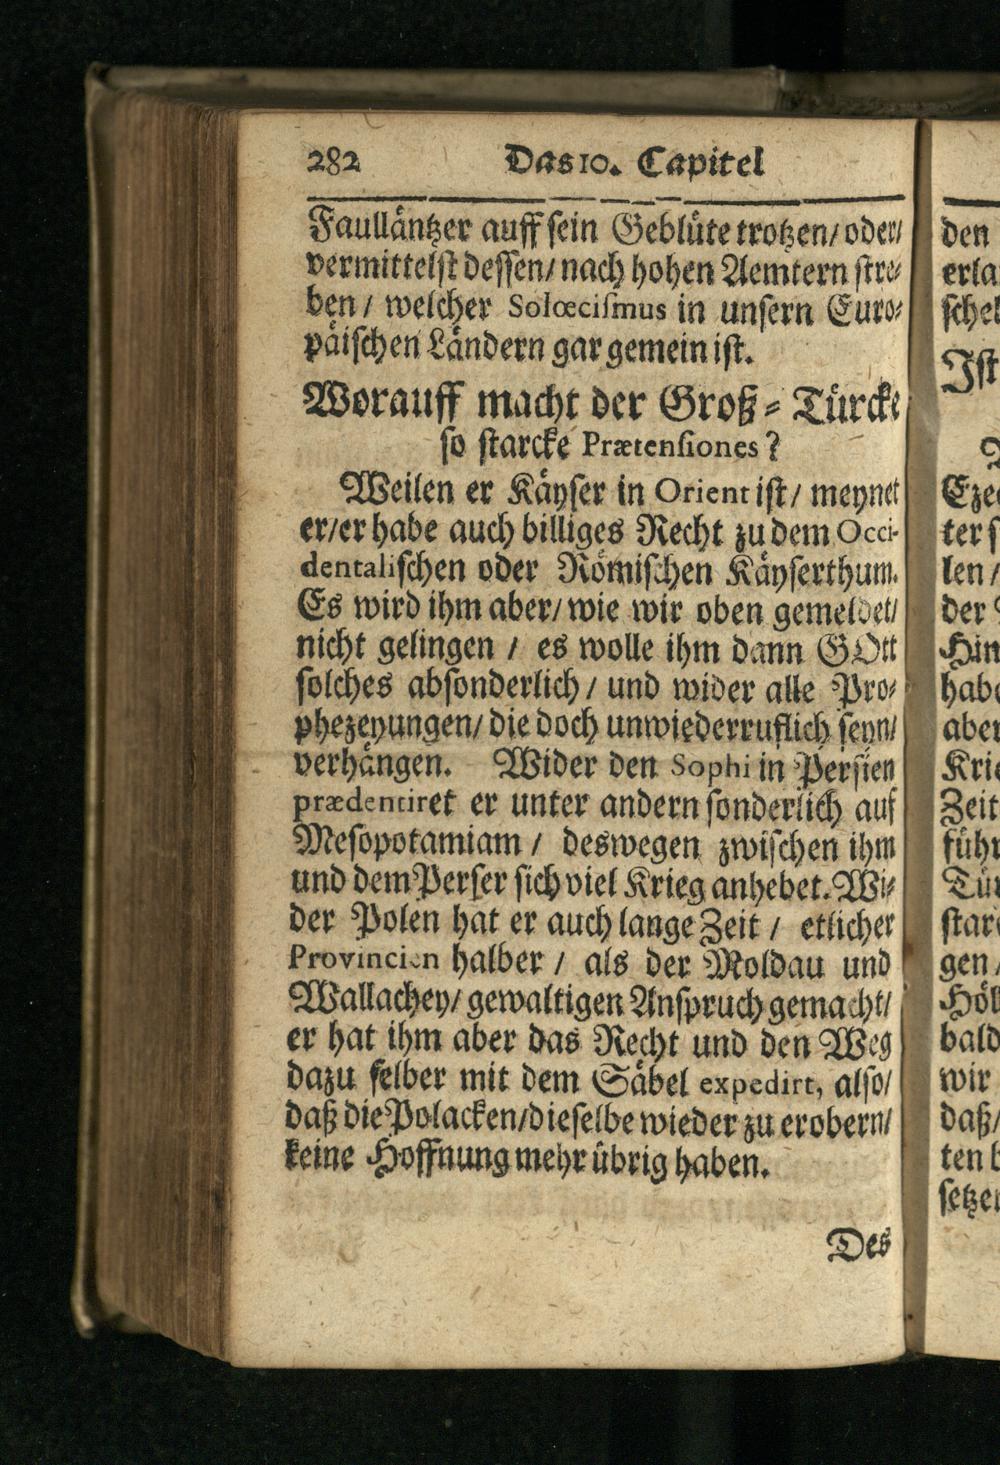 282 Das 10. Capitel
Faulläntzer auff sein Geblüte trotzen/ oder/
vermittelst dessen/ nach hohen Aemtern stre-
ben / welcher Solœcismus in unsern Euro-
päischen Ländern gar gemein ist.
Worauff macht der Groß-Türcke
so starcke Prætensiones?
Weilen er Käyser in Orient ist/ meynet
er/ er habe auch billiges Recht zu dem Occi-
dentalischen oder Römischen Käyserthum.
Es wird ihm aber/ wie wir oben gemeldet/
nicht gelingen / es wolle ihm dann GOtt
solches absonderlich / und wider alle Pro-
phezeyungen/ die doch unwiederruflich seyn/
verhängen. Wider den Sophi in Persien
prædentiret er unter andern sonderlich auf
Mesopotamiam / deswegen zwischen ihm
und dem Perser sich viel Krieg anhebet. Wi-
der Polen hat er auch lange Zeit / etlicher
Provincien halber / als der Moldau und
Wallachey/ gewaltigen Anspruch gemacht/
er hat ihm aber das Recht und den Weg
dazu selber mit dem Säbel expedirt, also/
daß die Polacken/ dieselbe wieder zu erobern/
keine Hoffnung mehr übrig haben.
Des
den
erla
schel
Ist
Czec
ter s
len /
der
Hin
habe
aber
Krie
Zeit
führ
Tür
starc
gen /
Höl
bald
wir
daß/
ten
setzen